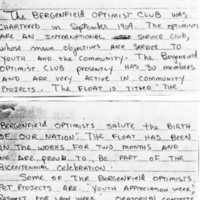 The Bergenfield Optimist Club was
chartered in September 1969. The optimists
are an International Service Club,
whose main objectives are service to
youth and the community. The Bergenfield
Optimist Club presently has 30 members
and are very active in community
projects. The float is titled "The
Bergenfield Optimist salute the Birth
of our Nation". The float has been
in the works for two months and
we are proud to be part of the
Bicentennial Celebration.
Some of the Bergenfield Optimists
pet projects are. "Youth Appreciation Week,"
Respect for Law Week, Oratorical contests